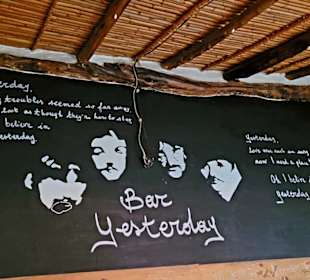 yesterday,
troubles seemed so far away
look as though they're here to stay
I believe in
yesterday
Bar
Yesterday
Yesterday,
love was such an easy
now I need a place
Oh, I believe in
yesterday